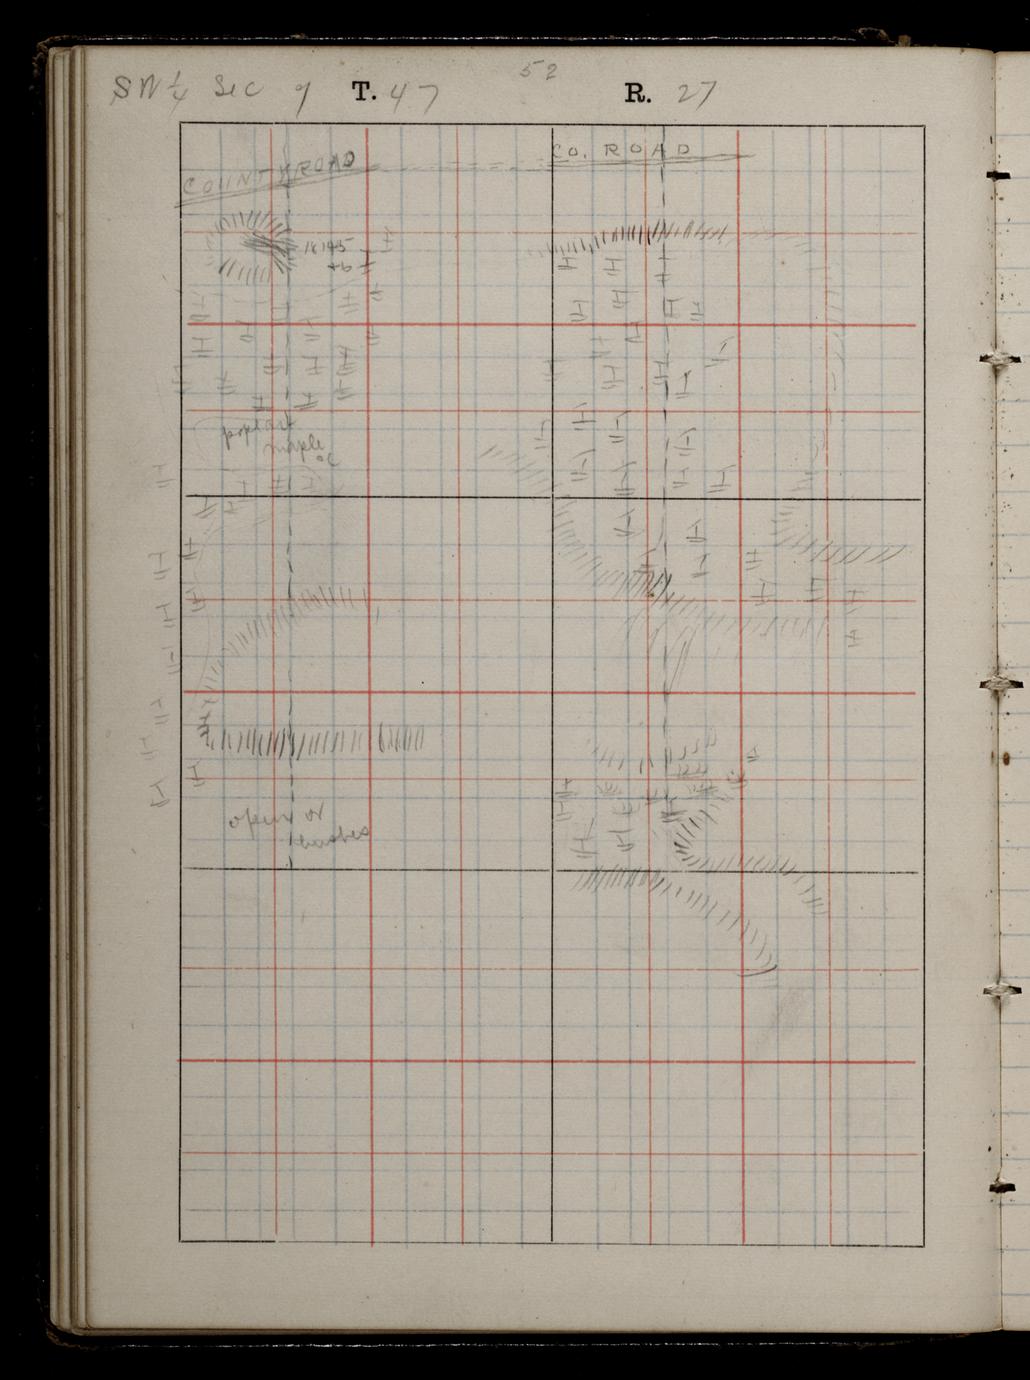 52
SW 1/4 Sec 9 T. 47 R. 27
COUNTY ROAD
CO. ROAD
18145
to
poplar
maple
open or
bushes